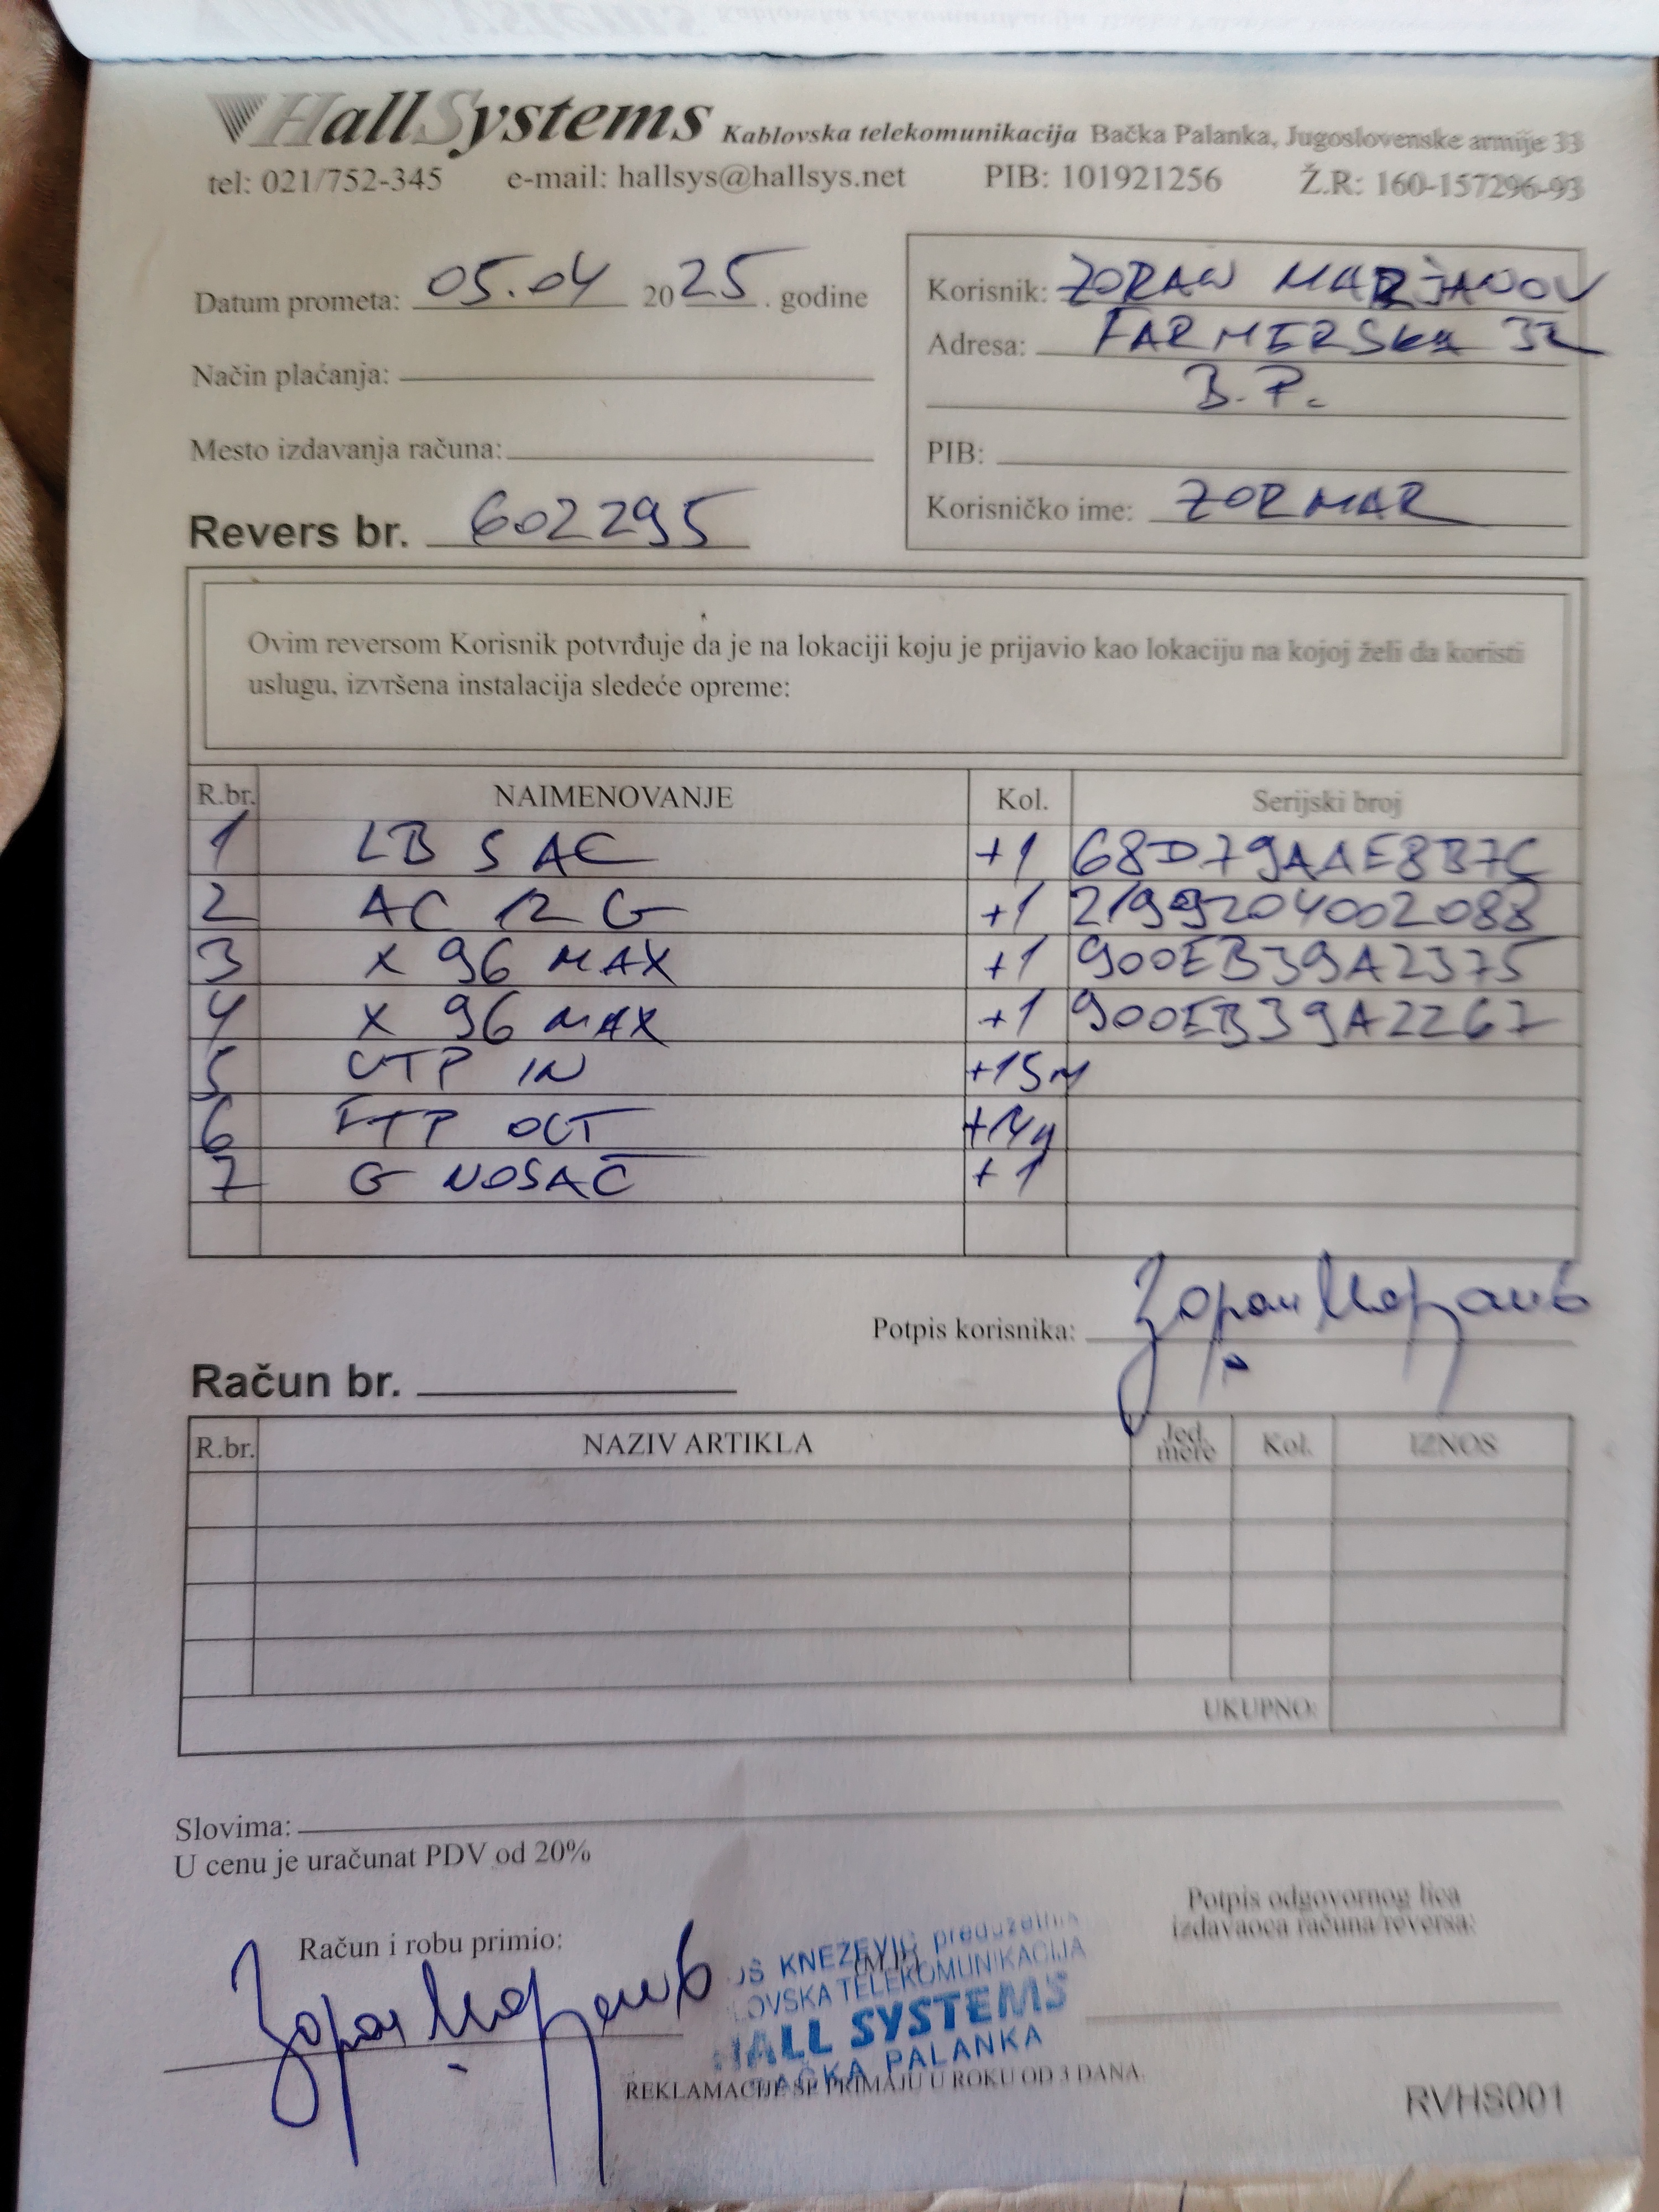 HallSystems Kablovska telekomunikacija Bačka Palanka, Jugoslovenske armije 33
tel: 021/752-345 e-mail: hallsys@hallsys.net PIB: 101921256 Ž.R: 160-157296-93
Datum prometa: 05.04 2025. godine
Način plaćanja:
Mesto izdavanja računa:
Revers br. 602295
Korisnik: ZORAN MARJANOV
Adresa: FARMERSka 32
B.P.
PIB:
Korisničko ime: ZORMAR
Ovim reversom Korisnik potvrđuje da je na lokaciji koju je prijavio kao lokaciju na kojoj želi da koristi
uslugu, izvršena instalacija sledeće opreme:
R.br. NAIMENOVANJE Kol. Serijski broj
1 LB 5 AC +1 68D79AAE8B7C
2 AC 12 G +1 2199204002088
3 X 96 MAX +1 900EB39A2375
4 X 96 MAX +1 900EB39A2267
5 UTP IN +15M
6 FTP OUT +14M
7 G NOSAČ +1
Potpis korisnika: Зоран Марјанов
Račun br.
R.br. NAZIV ARTIKLA Jed. mere Kol. IZNOS
UKUPNO:
Slovima:
U cenu je uračunat PDV od 20%
Račun i robu primio:
Зоран Марјанов
(M.P.)
KNEZEVIC preduzetnik
OVSKA TELEKOMUNIKACIJA
HALL SYSTEMS
BAČKA PALANKA
Potpis odgovornog lica
izdavaoca računa/reversa:
REKLAMACIJE SE PRIMAJU U ROKU OD 3 DANA.
RVHS001